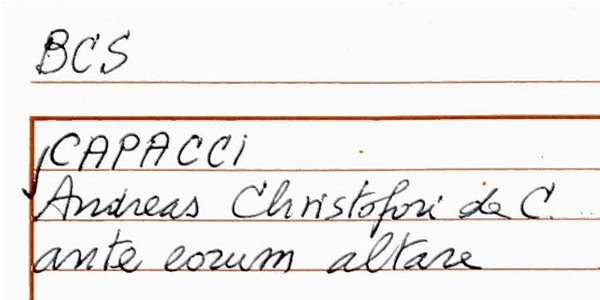 BCS
CAPACCI
Andreas Christofori de C.
ante eorum altare